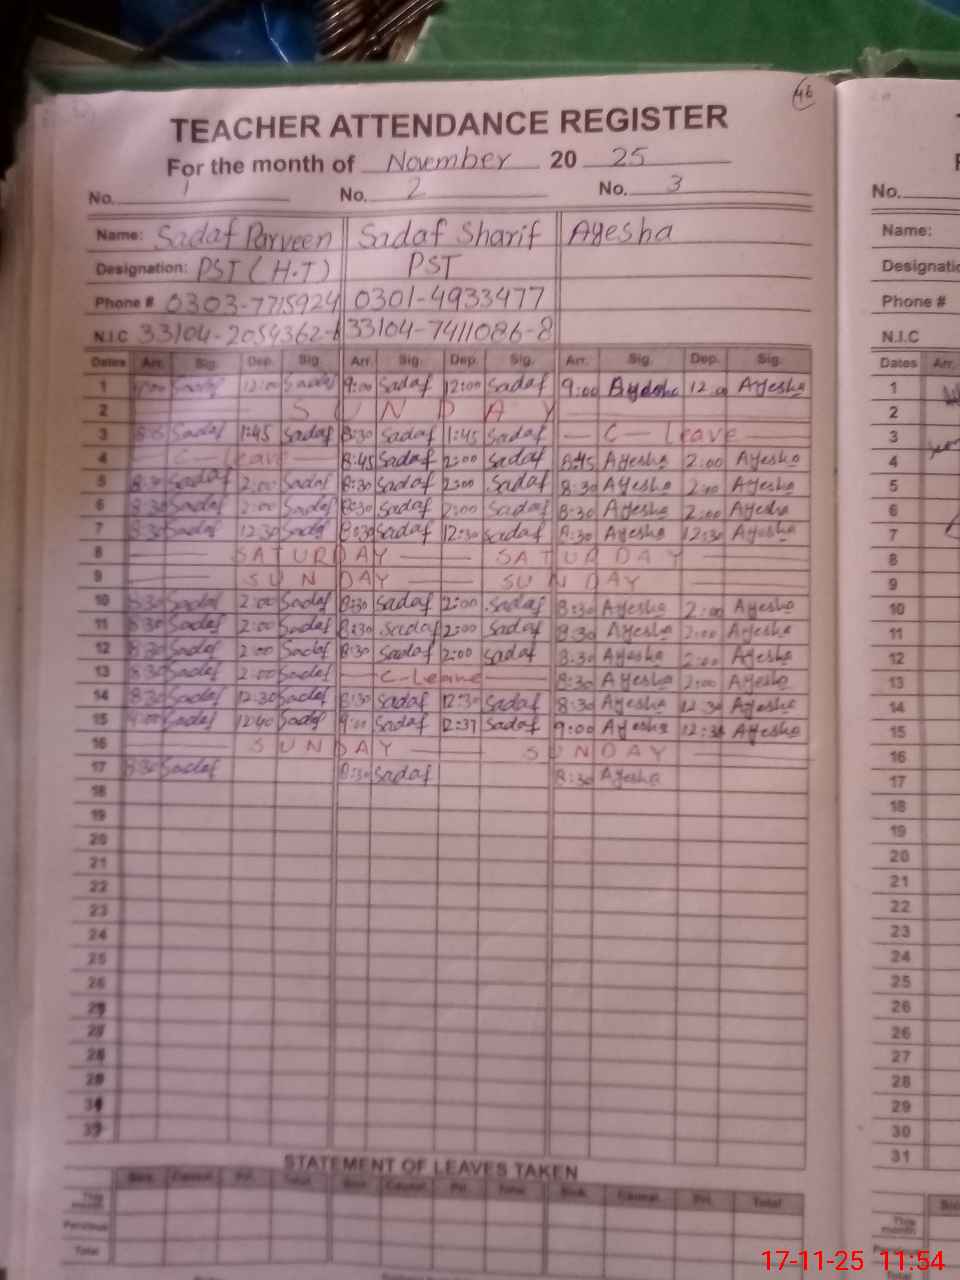 46
TEACHER ATTENDANCE REGISTER
For the month of November 20 25
No. 1 No. 2 No. 3 No.
Name: Sadaf Parveen Sadaf Sharif Ayesha Name:
Designation: PST (H.T) PST
Phone # 0303-7715924 0301-4933477 Phone #
N.I.C 33104-2054362- 33104-7411086-8 N.I.C
Dates Arr. Sig. Dep. Sig. Arr. Sig. Dep. Sig. Arr. Sig. Dep. Sig. Dates Arr.
1 9:00 Sadaf 12:00 Sadaf 9:00 Sadaf 12:00 Sadaf 9:00 Ayesha 12:00 Ayesha 1
2 SUNDAY 2
3 Sadaf 1:45 Sadaf 8:30 Sadaf 1:45 Sadaf C-Leave 3
4 C-Leave 8:45 Sadaf 2:00 Sadaf 8:45 Ayesha 2:00 Ayesha 4
5 8:30 Sadaf 2:00 Sadaf 8:30 Sadaf 2:00 Sadaf 8:30 Ayesha 2:00 Ayesha 5
6 8:30 Sadaf 2:00 Sadaf 8:30 Sadaf 2:00 Sadaf 8:30 Ayesha 2:00 Ayesha 6
7 8:30 Sadaf 12:30 Sadaf 8:30 Sadaf 12:30 Sadaf 8:30 Ayesha 12:30 Ayesha 7
8 SATURDAY SATURDAY 8
9 SUNDAY SUNDAY 9
10 8:30 Sadaf 2:00 Sadaf 8:30 Sadaf 2:00 Sadaf 8:30 Ayesha 2:00 Ayesha 10
11 8:30 Sadaf 2:00 Sadaf 8:30 Sadaf 2:00 Sadaf 8:30 Ayesha 2:00 Ayesha 11
12 8:30 Sadaf 2:00 Sadaf 8:30 Sadaf 2:00 Sadaf 8:30 Ayesha 2:00 Ayesha 12
13 8:30 Sadaf 2:00 Sadaf C-Leave 8:30 Ayesha 2:00 Ayesha 13
14 8:30 Sadaf 12:30 Sadaf 8:30 Sadaf 12:30 Sadaf 8:30 Ayesha 12:30 Ayesha 14
15 9:00 Sadaf 12:40 Sadaf 9:00 Sadaf 12:37 Sadaf 9:00 Ayesha 12:38 Ayesha 15
16 SUNDAY SUNDAY 16
17 8:30 Sadaf 8:30 Sadaf 8:30 Ayesha 17
18 18
19 19
20 20
21 21
22 22
23 23
24 24
25 25
26 26
26
27
28
29
30
31
STATEMENT OF LEAVES TAKEN
Total
This month This month
Previous
Total Total
17-11-25 11:54